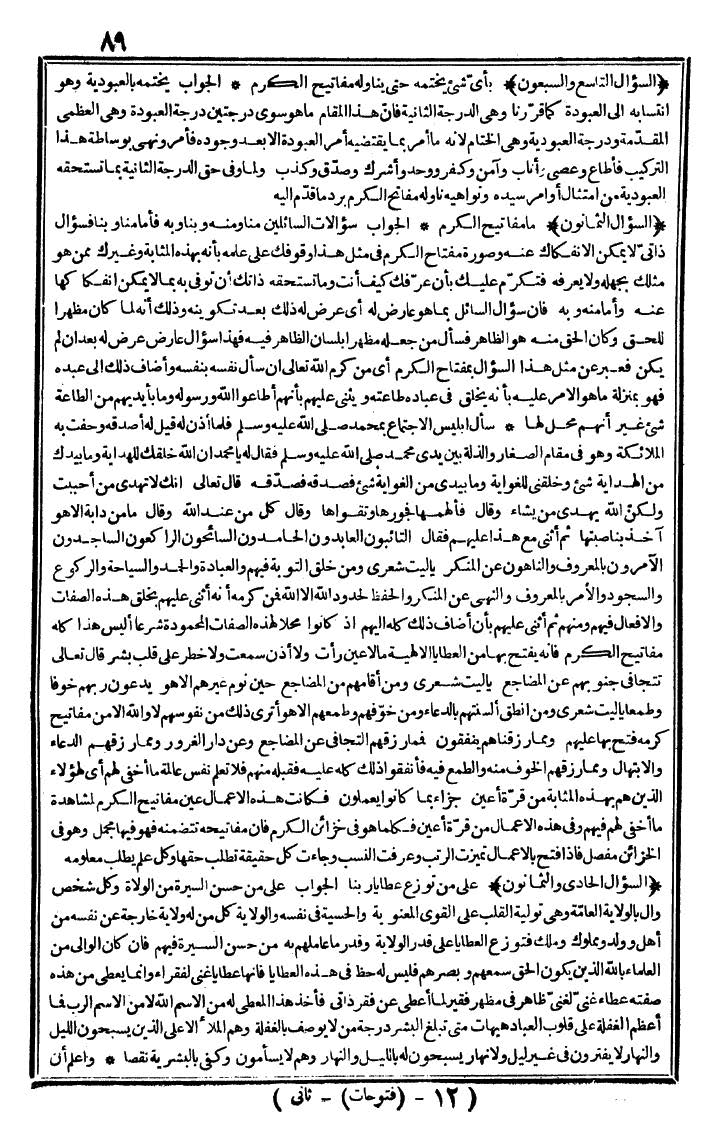 ٨٩
﴿السؤال التاسع والسبعون﴾ بأى شئ يختمه حتى يناوله مفاتيح الكرم * الجواب يختمه بالعبودية وهو
انتسابه الى العبودة كما قررنا وهى الدرجة الثانية فان هذا المقام ما هو سوى درجتين درجة العبودة وهى العظمى
المقدمة ودرجة العبودية وهى الختام لانه ما أمر بما يقتضيه أمر العبودة الا بعد وجوده فأمر ونهى بوساطة هذا
التركيب فأطاع وعصى وأناب وآمن وكفر ووحد وأشرك وصدّق وكذب ولما وفى حق الدرجة الثانية بما تستحقه
العبودية من امتثال أوامر سيده ونواهيه ناوله مفاتيح الكرم برد ما قدّم اليه
﴿السؤال الثمانون﴾ ما مفاتيح الكرم * الجواب سؤالات السائلين منا ومنه وبنا وبه فأما منا وبنا فسؤال
ذاتىّ لا يمكن الانفكاك عنه وصورة مفتاح الكرم فى مثل هذا وقوفك على علمه بأنه بهذه المثابة وغيرك ممن هو
مثلك يجهله ولا يعرفه فتكرّم عليك بأن عرّفك كيف أنت وما تستحقه ذاتك أن توفى به مما لا يمكن انفكاكها
عنه وأما منه وبه فان سؤال السائل بما هو عارض له أى عرض له ذلك بعد تكوينه وذلك أنه لما كان مظهرا
للحق وكان الحق منه هو الظاهر فسأل من جعله مظهرا بلسان الظاهر فيه فهذا سؤال عارض عرض له بعد ان لم
يكن فعبر عن مثل هذا السؤال بمفتاح الكرم أى من كرم الله تعالى ان سأل نفسه بنفسه وأضاف ذلك الى عبده
فهو بمنزلة ما هو الامر عليه بأنه يخلق فى عباده طاعته ويثنى عليهم بأنهم أطاعوا الله ورسوله وما بأيديهم من الطاعة
شئ غير أنهم محل لها * سأل ابليس الاجتماع بمحمد صلى الله عليه وسلم فلما أذن له قيل له أصدقه وحفت به
الملائكة وهو فى مقام الصغار والذلة بين يدى محمد صلى الله عليه وسلم فقال له يا محمد ان الله خلقك للهداية وما بيدك
من الهداية شئ وخلقنى للغواية وما بيدى من الغواية شئ فصدقه فصدّقه قال تعالى انك لا تهدى من أحببت
ولكنّ الله يهدى من يشاء وقال فألهمها فجورها وتقواها وقال كل من عند الله وقال ما من دابة الا هو
آخذ بناصيتها ثم أثنى مع هذا عليهم فقال التائبون العابدون الحامدون السائحون الراكعون الساجدون
الآمرون بالمعروف والناهون عن المنكر ياليت شعرى ومن خلق التوبة فيهم والعبادة والحمد والسياحة والركوع
والسجود والأمر بالمعروف والنهى عن المنكر والحفظ لحدود الله الا الله فمن كرمه أنه أثنى عليهم بخلق هذه الصفات
والافعال فيهم ومنهم ثم أثنى عليهم بأن أضاف ذلك كله اليهم اذ كانوا محلا لهذه الصفات المحمودة شرعا أليس هذا كله
مفاتيح الكرم فانه يفتح بها من العطايا الالهية ما لا عين رأت ولا أذن سمعت ولا خطر على قلب بشر قال تعالى
تتجافى جنوبهم عن المضاجع ياليت شعرى ومن أقامهم من المضاجع حين نوم غيرهم الا هو يدعون ربهم خوفا
وطمعا ياليت شعرى ومن انطق ألسنتهم بالدعاء ومن خوّفهم وطمعهم الا هو أترى ذلك من نفوسهم لا والله الا من مفاتيح
كرمه فتح بها عليهم ومما رزقناهم ينفقون فمما رزقهم التجافى عن المضاجع وعن دار الغرور ومما رزقهم الدعاء
والابتهال ومما رزقهم الخوف منه والطمع فيه فأنفقوا ذلك كله عليه فقبله منهم فلا تعلم نفس عالمة ما أخفى لهم أى لهؤلاء
الذين هم بهذه المثابة من قرّة أعين جزاء بما كانوا يعملون فكانت هذه الاعمال عين مفاتيح الكرم لمشاهدة
ما أخفى لهم فيهم وفى هذه الاعمال من قرّة أعين فكلما هو فى خزائن الكرم فان مفاتيحه تتضمنه فهو فيها مجمل وهو فى
الخزائن مفصل فاذا فتح بالاعمال تميزت الرتب وعرفت النسب وجاءت كل حقيقة تطلب حقها وكل علم يطلب معلومه
﴿السؤال الحادى والثمانون﴾ على من توزع عطايا ربنا الجواب على من حسن السيرة من الولاة وكل شخص
وال بالولاية العامّة وهى تولية القلب على القوى المعنوية والحسية فى نفسه والولاية كل من له ولاية خارجة عن نفسه من
أهل وولد ومملوك وملك فتوزع العطايا على قدر الولاية وقدر ما عاملهم به من حسن السيرة فيهم فان كان الوالى من
العلماء بالله الذين يكون الحق سمعهم وبصرهم فليس له حظ فى هذه العطايا فانها عطايا غنى لفقراء وانما يعطى من هذه
صفته عطاء غنىّ لغنىّ ظاهر فى مظهر فقير لما أعطى عن فقر ذاتى فأخذ هذا المعطى له من الاسم الله لا من الاسم الرب فما
أعظم الغفلة على قلوب العباد هيهات متى تبلغ البشر درجة من لا يوصف بالغفلة وهم الملأ الاعلى الذين يسبحون الليل
والنهار لا يفترون فى غير ليل ولا نهار يسبحون له بالليل والنهار وهم لا يسأمون وكفى بالبشرية نقصا * واعلم أن
( ١٢ - (فتوحات) - ثانى )